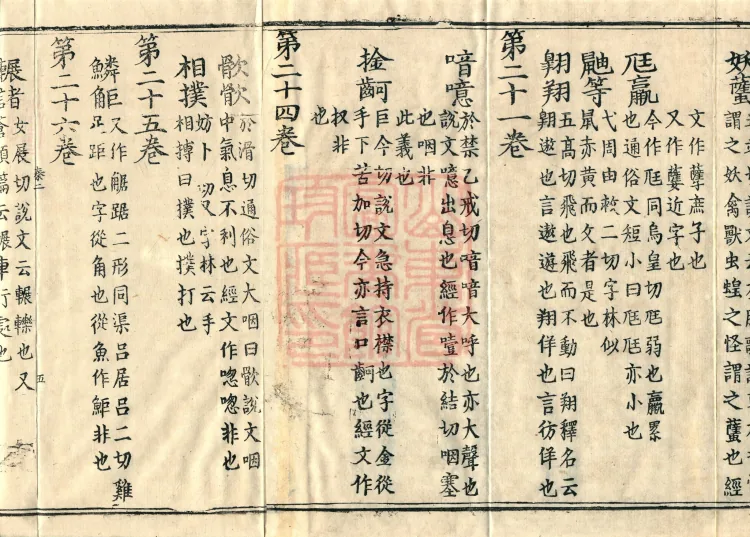 妖蠥
謂之妖禽獸虫蝗之怪謂之蠥也經
文作孽庶子也
又作㜸近字也
尫羸
今作尫同烏皇切尫弱也羸累
也通俗文短小曰尫尫亦小也
鼬等
弋周由救二切字林似
鼠赤黃而文者是也
翱翔
五高切飛也飛而不動曰翔釋名云
翱遨也言遨遊也翔佯也言彷佯也
第二十一卷
喑噫
於禁乙戒切喑喑大呼也亦大聲也
說文噫出息也經作噎於結切咽塞
也咽非
此義也
捦
巨今切說文急持衣襟也字從金從
手下苦加切今亦言口也經文作
扠非
也
第二十四卷
於滑切通俗文大咽曰說文咽
中氣息不利也經文作唿唿非也
相撲
妨卜切又字林云手
相搏曰撲也撲打也
第二十五卷
鱗
又作二形同渠呂居呂二切雞
足距也字從角也從魚作非也
第二十六卷
輾者
女展切說文云輾轢也又
蒼頡篇云輾車行處也
五